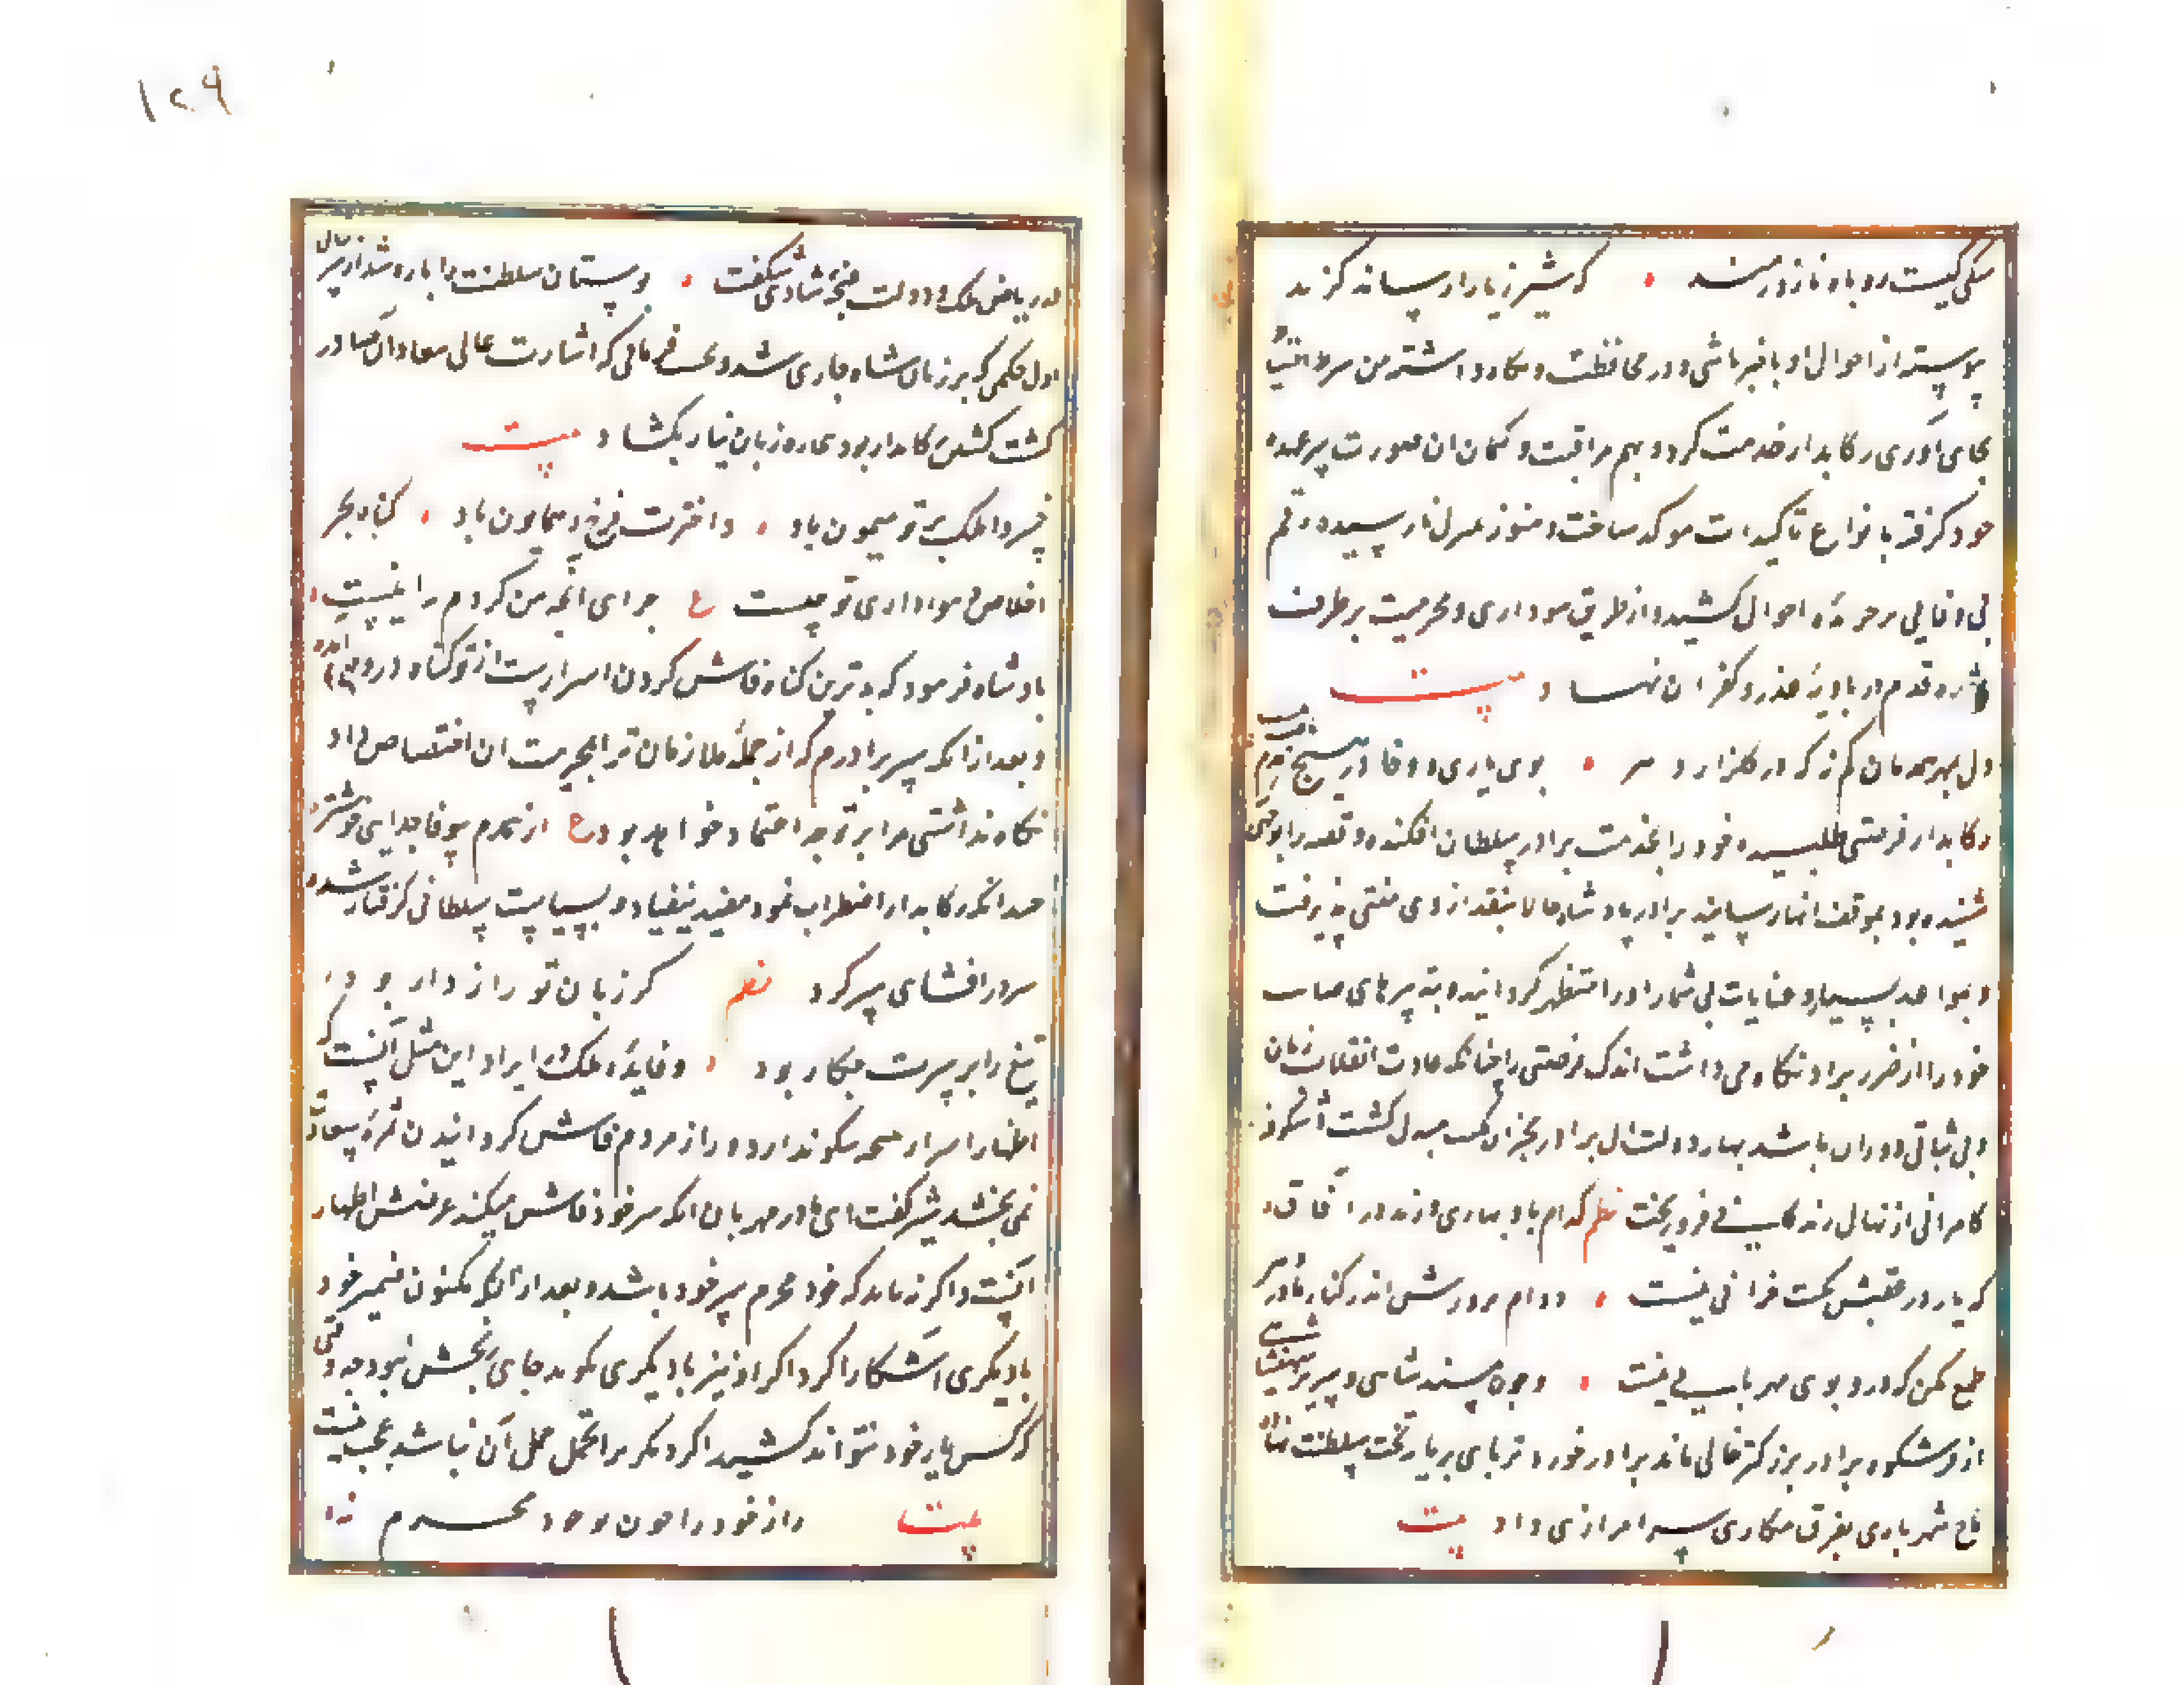 سکی کیست روباه نازورمند که شیر ژیان را رساند کزند
پیوسته از احوال او باخبر باشی و در محافظت و نگاه داشتن من سر احتیاط
بجای آوری رکابدار خدمت کرد و بهم مراقبت و کتمان ان صورت بر عهده
خود کرفته بانواع تاکیدات موکد ساخت و هنوز بمنزل نارسیده رقم
بی وفایی بر جریدهٔ احوال کشید و از طریق هواداری و محرمیت برطرف
شده قدم در بادیهٔ غدر و کفران نهاد بیت
دل بمهر همدمان کم نه که در کلزار دهر بوی یاری و وفا در هیچ
رکابدار فرصتی طلبیده خود را بخدمت برادر سلطان افکنده و قصه را بوجهی
شنیده بود بموقف انها رسانید برادر پادشاه حالا بنقد از وی منتی پذیرفت
و بمواعید بسیار و عنایات بی شمار او را مستظهر کردانید و بتدبیرهای صایب
خود را از ضرر برادر نکاه می داشت اندک فرصتی را چنانکه عادت انقلاب زمان
و بی ثباتی دوران باشد بهار دولت ان برادر بخزان نکبت مبدل کشت شکوفهٔ
کامرانی از نهال زندکانی فرو ریخت نظم کدام باد بهاری وزید در آفاق
که باز در عقبش نکبت خزانی نیست دوام پرورش اندر کنار مادر دهر
طمع مکن که درو بوی مهربانی نیست و چون مسند شاهی و سریر شهنشاهی
از شکوه برادر بزرکتر خالی ماند برادر خورد ترپای بر پایهٔ تخت سلطنت نهاد
تاج شهریاری بفرق کامکاری سرافرازی داد بیت
۱۲۹
در ریاض ملک و دولت غنچهٔ شادی شکفت و بستان سلطنت را
اول حکمی که بر زبان شاه جاری شد و نخست فرمانی که اشارت عالی بنفاذ آن صادر
کشت کشتن رکابدار بود بیچاره زبان نیاز بکشاد بیت
خسروا ملک بر تو میمون باد و اخترت فرخ و همایون باد کناه بجز
اخلاص و هواداری تو چیست ع جزای انچه من کردم نه اینست
پادشاه فرمود که بدترین کناه فاش کردن اسرارست از تو کناه در وجود آمده
و بعد از انکه سر برادرم که از جملهٔ ملازمان ترا بمحرمیت ان اختصاص داد
نکاه نداشتی مرا بر تو چه اعتماد خواهد بود ع از همدم بیوفا جدایی خوشتر
چندانکه رکابدار اضطراب نمود مفید نیفتاد و بسیاست سلطانی کرفتار شده
سر در افشای سر کرد نظم کر زبان تو رازدار بود
تیغ را بر سرت چکار بود و فایده ملک در ایراد این مثل آنست که
اظهار اسرار نتیجه نیکو ندارد و راز مردم فاش کردانیدن ثمرهٔ سعادت
نمی بخشد شیر کفت ای مادر مهربان انکه سر خود فاش میکند غرضش اظهار
آنست و اکر نه باید که خود محرم سر خود باشد و بعد از آن که مکنون ضمیر خود
بادیکری آشکارا کرد اکر او نیز با دیکری بکوید جای رنجش نبود چه وقتی
که کس بار خود نتواند کشید اکر دیکری را تحمل حمل آن نباشد عجب نیست
بیت راز خود را چون خود محرم نه